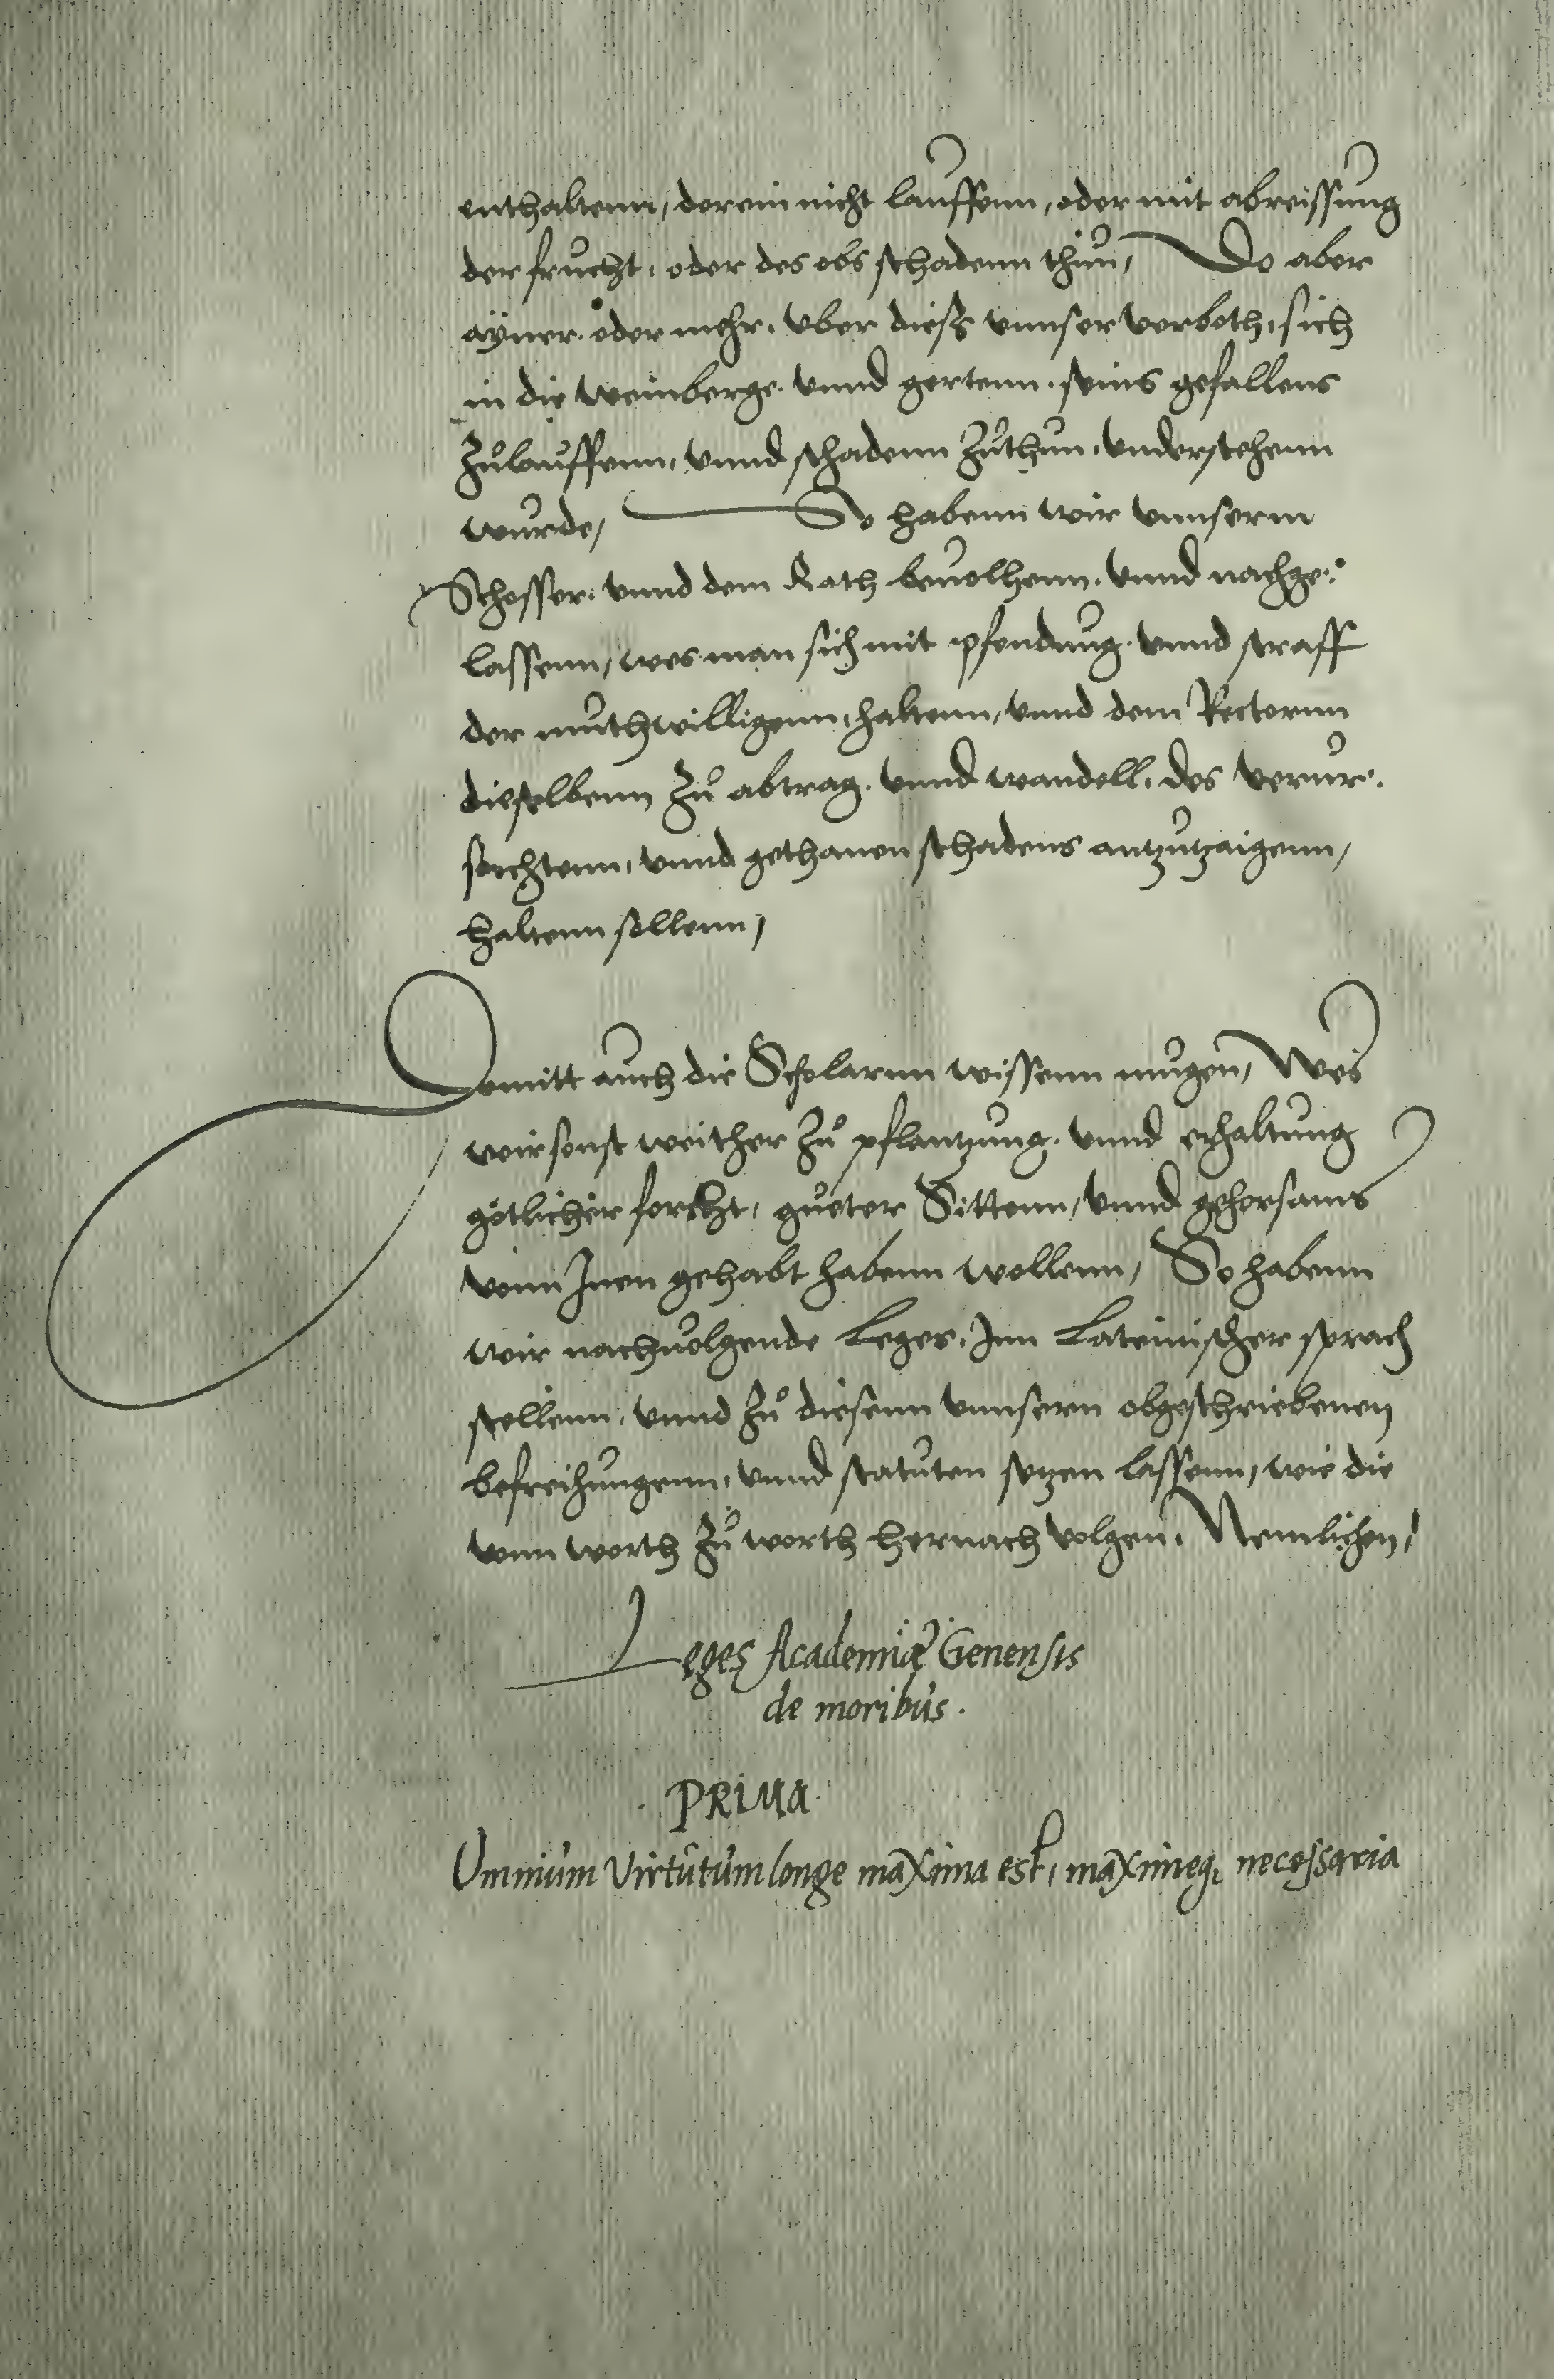 enthaltenn, darein nicht lauffenn, oder mit abreissung
der frucht, oder des obs schadenn thun, Do aber
ayner oder mehr, vber diess vnnser verboth, sich
in die weinberge vnnd gertenn, seins gefallens
zulauffenn, vnnd schadenn zuthun, vnderstehenn
wurde, So habenn wir vnnserm
Schosser vnnd dem Rath beuolhenn, vnnd nachge:
lassenn, wes man sich mit pfendung vnnd straff
der muthwilligenn, haltenn, vnnd dem Rectornn
dieselbenn zu abtrag vnnd wandell, des verur:
sachtenn, vnnd gethanen schadens antzutzaigenn,
haltenn sollenn,
Domitt auch die Scholarnn wissenn mugen, Wes
wir sonst weither zu pflantzung vnnd erhaltung
götlicher forcht, gueter Sittenn, vnnd gehorsams
vonn Inen gehabt habenn wollenn, So habenn
wir nachuolgende Leges, Inn Lateinischer sprach
stellenn, vnnd zu diesenn vnnsern obgeschriebenen
befreihungenn, vnnd statuten setzen lassenn, wie die
vonn worth zu worth hernach volgen, Nemlichen,
Leges Academiæ Genensis
de moribus.
PRIMA
Omnium Virtutum longe maxima est, maximeq; necessaria